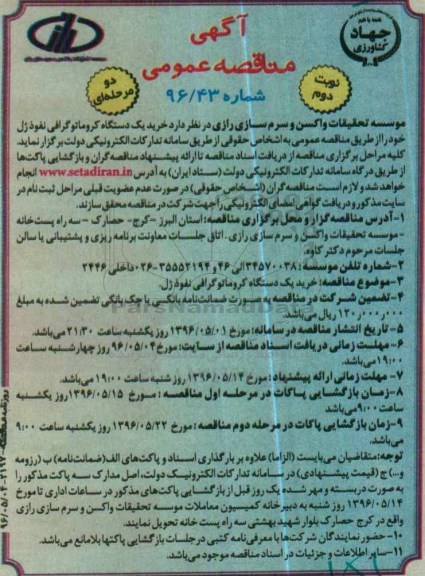 آگهی
مناقصه عمومی
شماره ۹۶/۴۳
جهاد
کشاورزی
نوبت
دوم
دو
مرحله‌ای
موسسه تحقیقات واکسن و سرم سازی رازی در نظر دارد خرید یک دستگاه کروماتوگرافی نفوذ ژل
خود را از طریق مناقصه عمومی به اشخاص حقوقی از طریق سامانه تدارکات الکترونیکی دولت برگزار نماید.
کلیه مراحل برگزاری مناقصه از دریافت اسناد مناقصه تا ارائه پیشنهاد مناقصه گران و بازگشایی پاکت‌ها
از طریق درگاه سامانه تدارکات الکترونیکی دولت (ستاد ایران) به آدرس www.setadiran.ir انجام
خواهد شد و لازم است مناقصه گران (اشخاص حقوقی) در صورت عدم عضویت قبلی مراحل ثبت نام در
سایت مذکور و دریافت گواهی امضای الکترونیکی را جهت شرکت در مناقصه محقق سازند.
۱-آدرس مناقصه گزار و محل برگزاری مناقصه: استان البرز -کرج- حصارک - سه راه پست خانه
-موسسه تحقیقات واکسن و سرم سازی رازی . اتاق جلسات معاونت برنامه ریزی و پشتیبانی یا سالن
جلسات مرحوم دکتر کاوه
۲-شماره تلفن موسسه: ۳۴۵۷۰۰۳۸ الی ۴۶ و ۳۵۵۵۲۱۹۴-۰۲۶ داخلی ۲۴۴۶
۳-موضوع مناقصه: خرید یک دستگاه کروماتوگرافی نفوذ ژل.
۴-تضمین شرکت در مناقصه به صورت ضمانت‌نامه بانکسی یا چک بانکی تضمین شده به مبلغ
۱۲۰,۰۰۰,۰۰۰ ریال می‌باشد.
۵- تاریخ انتشار مناقصه در سامانه: مورخ ۱۳۹۶/۰۵/۰۱ روز یکشنبه ساعت ۲۱:۳۰ می‌باشد.
۶- مهلت زمانی دریافت اسناد مناقصه از سایت: مورخ ۹۶/۰۵/۰۴ روز چهارشنبه ساعت
۱۹:۰۰ می‌باشد.
۷- مهلت زمانی ارائه پیشنهاد: مورخ ۱۳۹۶/۰۵/۱۴ روز شنبه ساعت ۱۹:۰۰ می‌باشد.
۸-زمان بازگشایی پاکات در مرحله اول مناقصه: مورخ ۱۳۹۶/۰۵/۱۵ روز یکشنبه
ساعت ۹:۰۰ می‌باشد
۹-زمان بازگشایی پاکات در مرحله دوم مناقصه: مورخ ۱۳۹۶/۰۵/۲۲ روز یکشنبه ساعت ۹:۰۰
می‌باشد.
توجه: متقاضیان می‌بایست (الزاما) علاوه بر بارگذاری اسناد و پاکت‌های الف (ضمانت‌نامه) ب (رزومه
و...) ج (قیمت پیشنهادی) در سامانه تدارکات الکترونیک دولت، اصل مدارک سه پاکت مذکور را
به صورت دربسته و مهر شده یک روز قبل از بازگشایی پاکت‌های مذکور در ساعات اداری تا مورخ
۱۳۹۶/۰۵/۱۴ روز شنبه به دبیرخانه کمیسیون معاملات موسسه تحقیقات واکسن و سرم سازی رازی
واقع در کرج حصارک بلوار شهید بهشتی سه راه پست خانه تحویل نمایند.
۱۰-حضور نمایندگان شرکت‌ها با معرفی‌نامه کتبی در جلسات بازگشایی پاکتها بلامانع می‌باشد.
۱۱-سایر اطلاعات و جزئیات در اسناد مناقصه موجود می‌باشد.